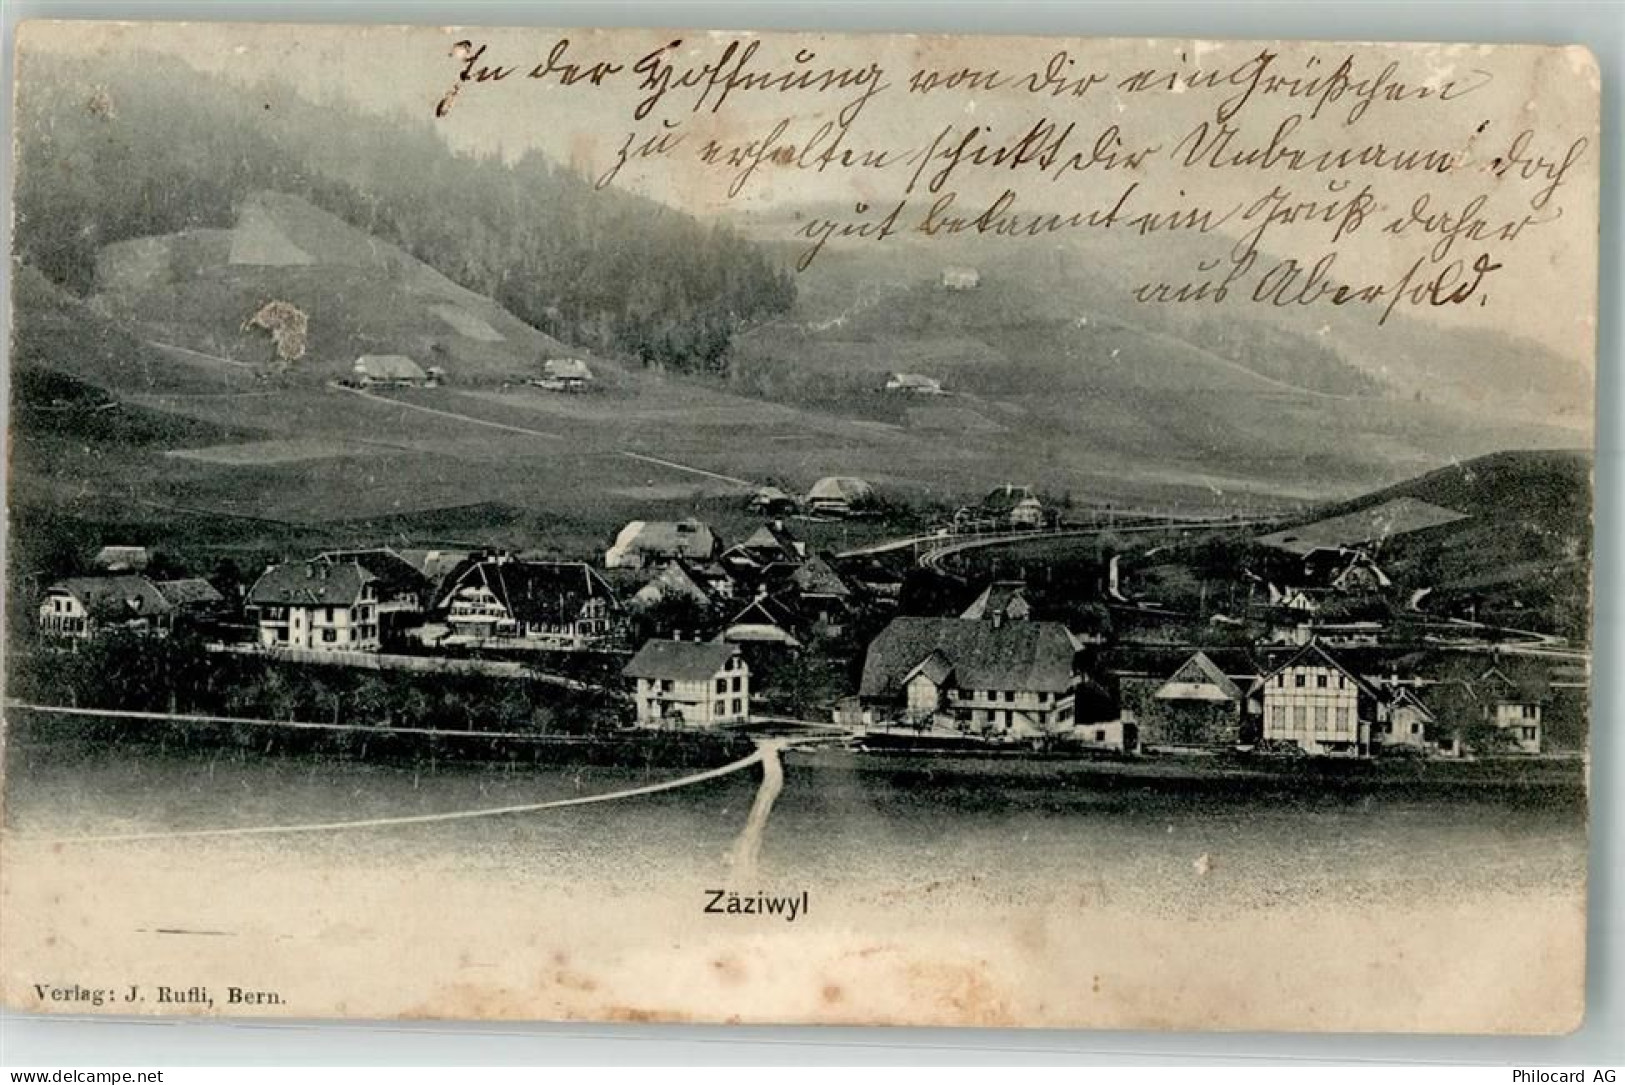 In der Hoffnung von Dir ein Grüßchen
zu erhalten schickt Dir Unbenannt doch
gut bekannt ein Gruß daher
aus Abersold.
Zäziwyl
Verlag: J. Rufli, Bern.
delcampe.net
Philocard AG